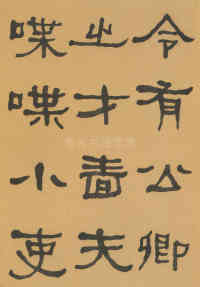 令有公卿
之才嗇夫
喋喋小吏